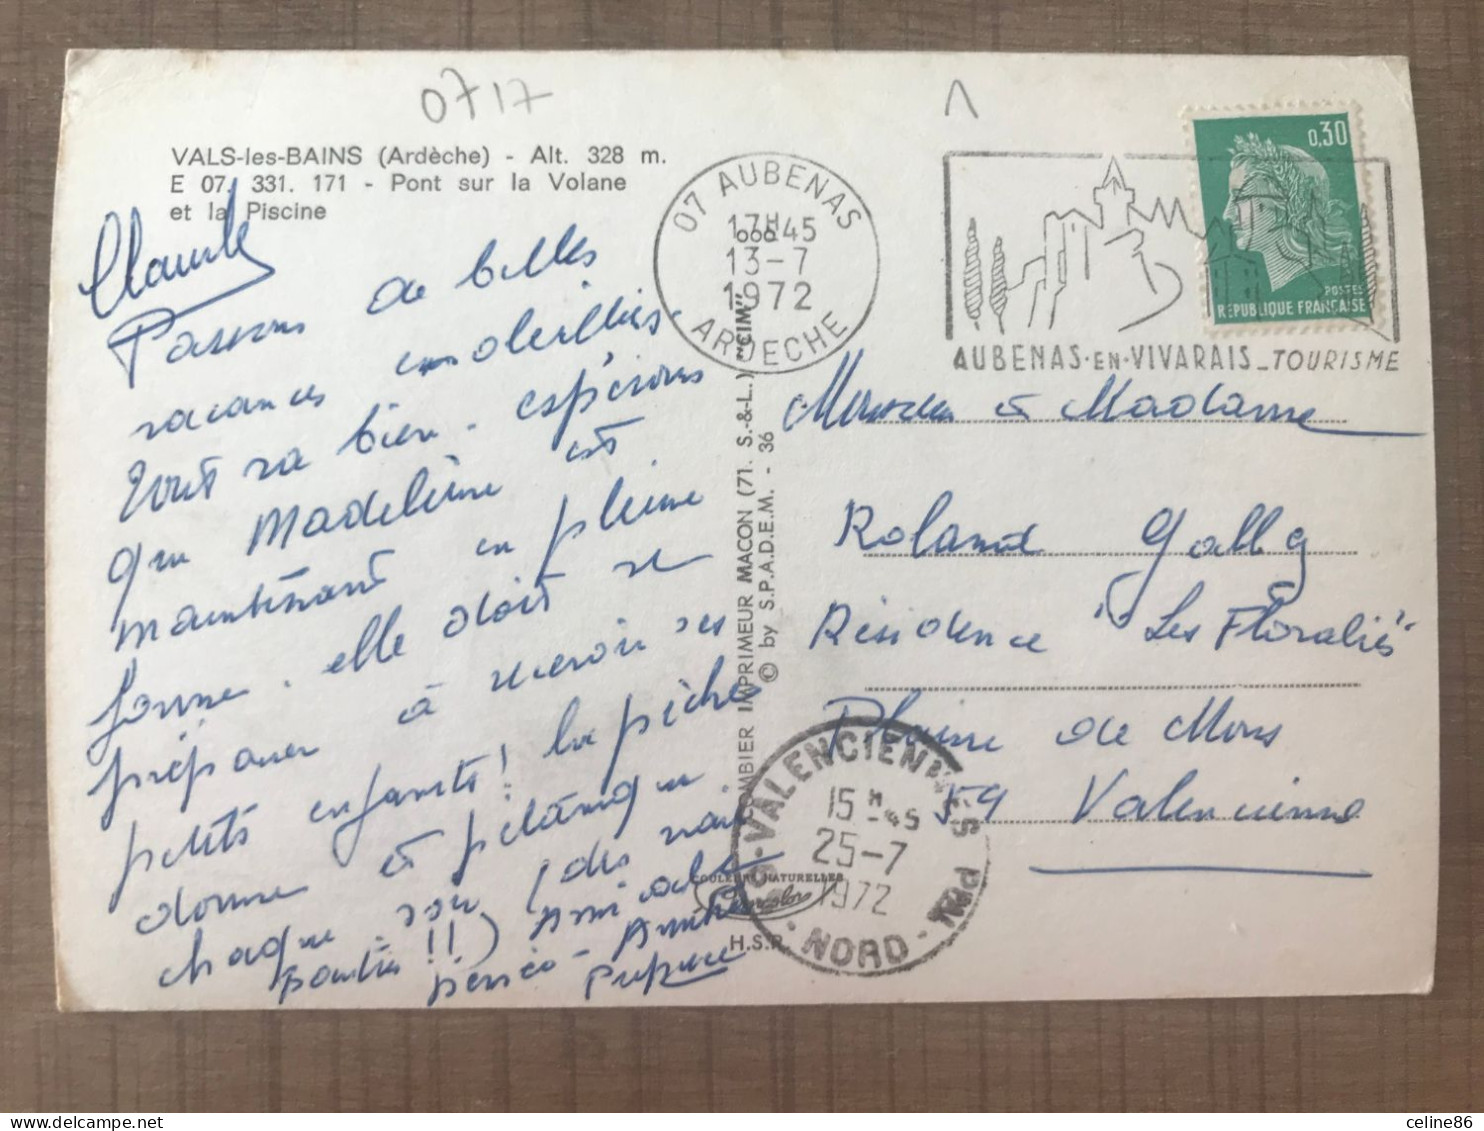 0717
1
VALS-les-BAINS (Ardèche) - Alt. 328 m.
E 07. 331. 171 - Pont sur la Volane
et la Piscine
Claude
Passons de belles
vacances ensoleillées.
Tout va bien. espérons
que Madeleine est
maintenant en pleine
forme. elle doit se
préparer à recevoir ses
petits enfants! la pêche
donne à pétanque
chaque soir (des vrais
boulistes!!) Amicalt
COMBIER IMPRIMEUR MACON (71. S.-&-L.) "CIM"
© by S.P.A.D.E.M. - 36
COULEURS NATURELLES
H.S.R.
07 AUBENAS
17H45
13-7
1972
ARDECHE
AUBENAS-EN-VIVARAIS_TOURISME
0,30
POSTES
REPUBLIQUE FRANÇAISE
Monsieur & Madame
Roland Gally
Résidence "Les Floralies"
Plaine de Mons
59 Valenciennes
59-VALENCIENNES PPAL
15H-45
25-7
1972
NORD
celine86